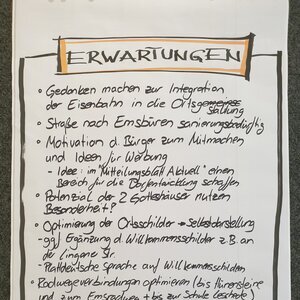 ERWARTUNGEN
• Gedanken machen zur Integration
der Eisenbahn in die Ortsgemeins
staltung
• Straße nach Emsbüren sanierungsbedürftig
• Motivation d. Bürger zum Mitmachen
und Ideen für Werbung
- Idee: im "Mitteilungsblatt Aktuell" einen
Bereich für die Dorfentwicklung schaffen
• Potenzial der 2 Gotteshäuser nutzen
Besonderheit!
• Optimierung der Ortsschilder → Selbstdarstellung
- ggf. Ergänzung d. Willkommensschilder z.B. an
der Lingener Str.
- Plattdeutsche Sprache auf Willkommensschildern
• Radwegeverbindungen optimieren bis
und zum Emsradweg + bis zur Schule